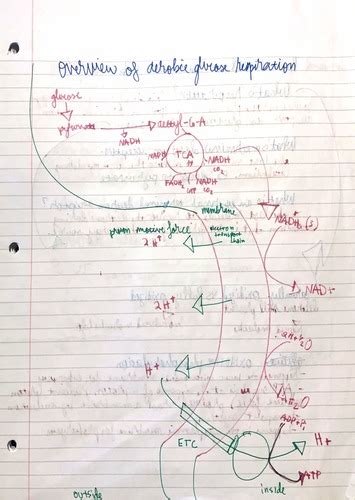 Overview of aerobic glucose respiration
glucose
pyruvate
acetyl-Co-A
NADH
NADH
TCA
NADH
CO2
FADH2
GTP
NADH
CO2
membrane
proton motive force
electron
transport
chain
2H+
NADH
NAD+
2H+
H+
H2O
ADP+Pi
ETC
H+
ATP
outside
inside